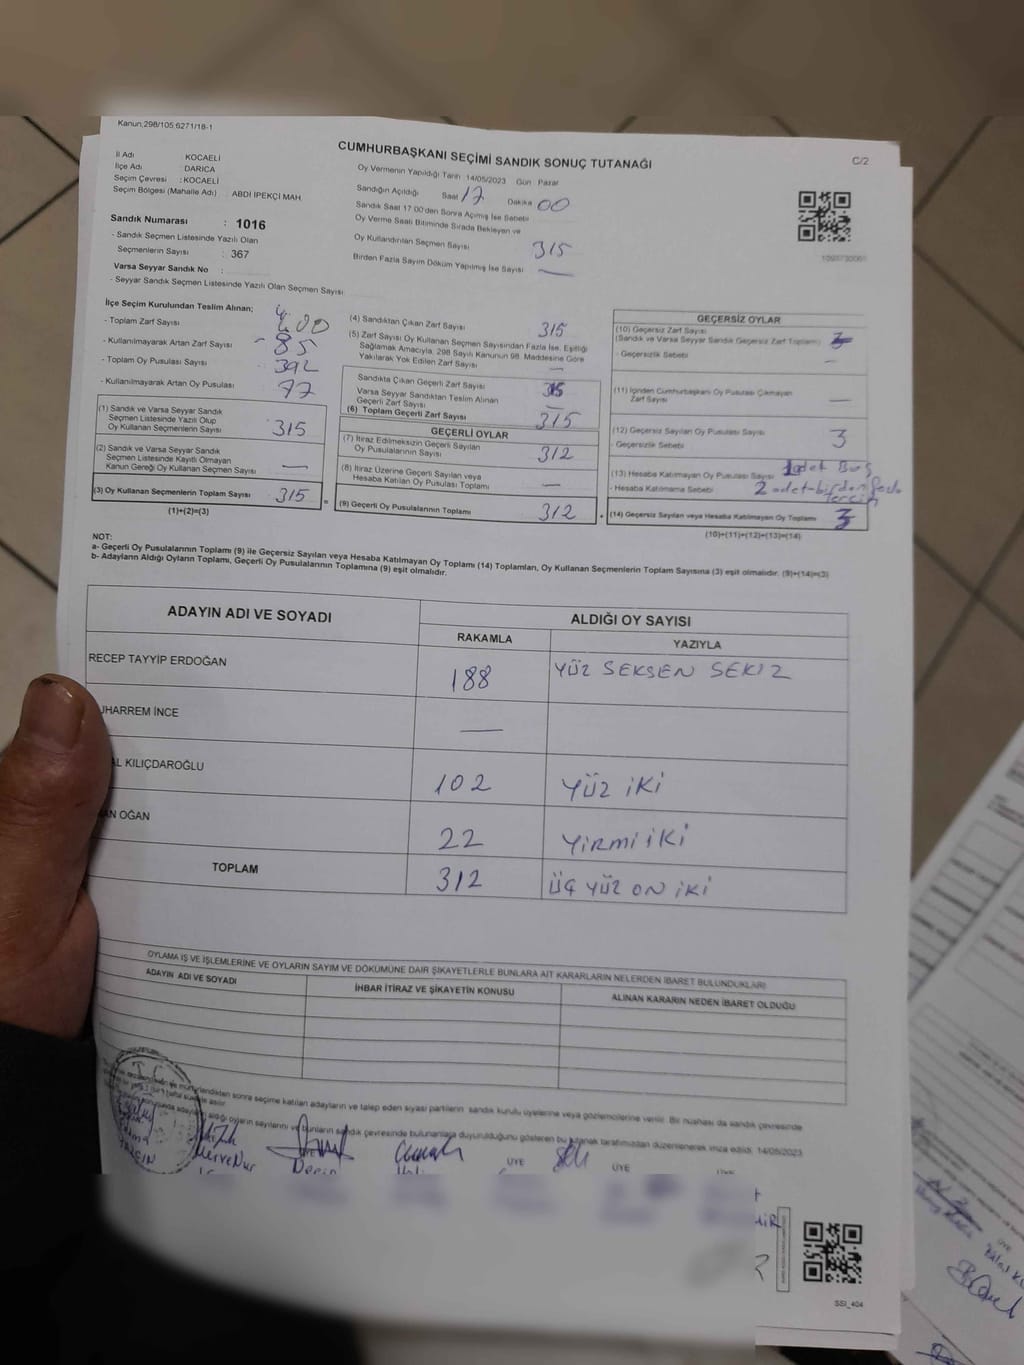 Kanun;298/105,6271/18-1
CUMHURBAŞKANI SEÇİMİ SANDIK SONUÇ TUTANAĞI
C/2
İl Adı KOCAELİ
İlçe Adı DARICA
Seçim Çevresi : KOCAELİ
Seçim Bölgesi (Mahalle Adı) : ABDİ İPEKÇİ MAH.
Sandık Numarası : 1016
- Sandık Seçmen Listesinde Yazılı Olan
Seçmenlerin Sayısı : 367
Varsa Seyyar Sandık No :
- Seyyar Sandık Seçmen Listesinde Yazılı Olan Seçmen Sayısı
Oy Vermenin Yapıldığı Tarih 14/05/2023 Gün Pazar
Sandığın Açıldığı Saat 17 Dakika 00
Sandık Saat 17.00'den Sonra Açılmış İse Sebebi
Oy Verme Saati Bitiminde Sırada Bekleyen ve
Oy Kullandırılan Seçmen Sayısı 315
Birden Fazla Sayım Döküm Yapılmış İse Sayısı —
İlçe Seçim Kurulundan Teslim Alınan;
- Toplam Zarf Sayısı 400
- Kullanılmayarak Artan Zarf Sayısı 85
- Toplam Oy Pusulası Sayısı 392
- Kullanılmayarak Artan Oy Pusulası 77
(1) Sandık ve Varsa Seyyar Sandık
Seçmen Listesinde Yazılı Olup
Oy Kullanan Seçmenlerin Sayısı 315
(2) Sandık ve Varsa Seyyar Sandık
Seçmen Listesinde Kayıtlı Olmayan
Kanun Gereği Oy Kullanan Seçmen Sayısı —
(3) Oy Kullanan Seçmenlerin Toplam Sayısı 315
(1)+(2)=(3)
(4) Sandıktan Çıkan Zarf Sayısı 315
(5) Zarf Sayısı Oy Kullanan Seçmen Sayısından Fazla İse, Eşitliği
Sağlamak Amacıyla, 298 Sayılı Kanunun 98. Maddesine Göre
Yakılarak Yok Edilen Zarf Sayısı —
Sandıkta Çıkan Geçerli Zarf Sayısı 315
Varsa Seyyar Sandıktan Teslim Alınan
Geçerli Zarf Sayısı —
(6) Toplam Geçerli Zarf Sayısı 315
GEÇERLİ OYLAR
(7) İtiraz Edilmeksizin Geçerli Sayılan
Oy Pusulalarının Sayısı 312
(8) İtiraz Üzerine Geçerli Sayılan veya
Hesaba Katılan Oy Pusulası Toplamı —
(9) Geçerli Oy Pusulalarının Toplamı 312
GEÇERSİZ OYLAR
(10) Geçersiz Zarf Sayısı
(Sandık ve Varsa Seyyar Sandık Geçersiz Zarf Toplamı)
- Geçersizlik Sebebi —
(11) İçinden Cumhurbaşkanı Oy Pusulası Çıkmayan
Zarf Sayısı —
(12) Geçersiz Sayılan Oy Pusulası Sayısı 3
- Geçersizlik Sebebi
(13) Hesaba Katılmayan Oy Pusulası Sayısı 1 adet Boş
- Hesaba Katılmama Sebebi 2 adet-birden fazla
tercih
(14) Geçersiz Sayılan veya Hesaba Katılmayan Oy Toplamı 3
(10)+(11)+(12)+(13)=(14)
NOT:
a- Geçerli Oy Pusulalarının Toplamı (9) ile Geçersiz Sayılan veya Hesaba Katılmayan Oy Toplamı (14) Toplamları, Oy Kullanan Seçmenlerin Toplam Sayısına (3) eşit olmalıdır. (9)+(14)=(3)
b- Adayların Aldığı Oyların Toplamı, Geçerli Oy Pusulalarının Toplamına (9) eşit olmalıdır.
ADAYIN ADI VE SOYADI ALDIĞI OY SAYISI
RAKAMLA YAZIYLA
RECEP TAYYİP ERDOĞAN 188 YÜZ SEKSEN SEKİZ
UHARREM İNCE —
AL KILIÇDAROĞLU 102 YÜZ İKİ
AN OĞAN 22 YİRMİ İKİ
TOPLAM 312 ÜÇ YÜZ ON İKİ
OYLAMA İŞ VE İŞLEMLERİNE VE OYLARIN SAYIM VE DÖKÜMÜNE DAİR ŞİKAYETLERLE BUNLARA AİT KARARLARIN NELERDEN İBARET BULUNDUKLARI
ADAYIN ADI VE SOYADI İHBAR İTİRAZ VE ŞİKAYETİN KONUSU ALINAN KARARIN NEDEN İBARET OLDUĞU
sonra seçime katılan adayların ve talep eden siyasi partilerin sandık kurulu üyelerine veya gözlemcilerine verilir. Bir nüshası da sandık çevresinde
aldığı oyların sayılarını ve bunların sandık çevresinde bulunanlara duyurulduğunu gösteren bu tutanak tarafımızdan düzenlenerek imza edildi. 14/05/2023
MerveNur
ÜYE
ÜYE
SSİ_404
ÜYE